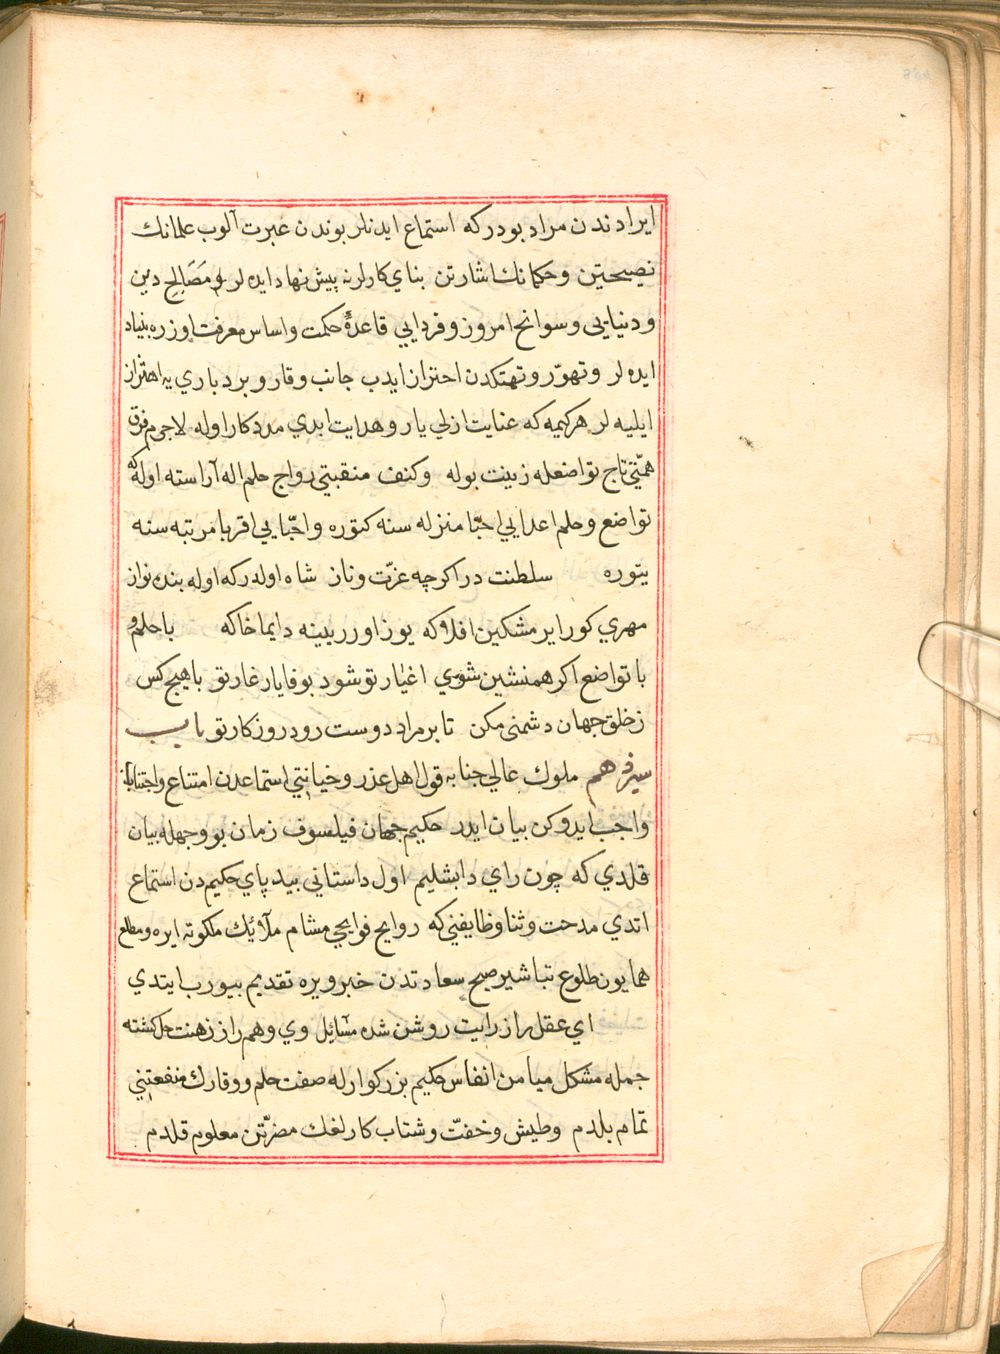 ايراد ندن مراد بودر كه استماع ايدنلر بوندن عبرت آلوب علمانك
نصيحتين و حكمانك اشارتن بناي كارلرنه پيش نهاد ايده لر و مصالح دين
و دنيايي و سوانح امروز و فردايي قاعدۀ حكمت و اساس معرفت اوزره بنياد
ايده لر و تهوّر و تهتكدن احتراز ايدب جانب وقار و بردباري يه اهتزاز
ايليه لر هر كيمه كه عنايت ازلي يار و هدايت ابدي مددكار اوله لاجرم فرق
همّتي تاج تواضعله زينت بوله و كنف منقبتي رواج حلم اله آراسته اوله كه
تواضع و حلم اعدايي احبّا منزله سنه كتوره و احبّايي اقربا مرتبه سنه
يتوره سلطنت در اكرچه عزّت و ناز شاه اولدر كه اوله بنده نواز
مهري كور اير مشكين افلاكه يوز اورر يينه دايما خاكه با حلم و
با تواضع اكر همنشين شوي اغيار تو شود بوفا يار غار تو با هيچ كس
ز خلق جهان دشمنى مكن تا بر مراد دوست رود روزكار تو باب
سيزدهم ملوك عالي جنابه قول اهل غدر و خيانتي استماعدن امتناع و اجتنابك
واجب ايدوكن بيان ايدر حكيم جهان فيلسوف زمان بو وجهله بيان
قلدي كه چون راي دابشليم اول داستاني بيدپاي حكيم دن استماع
اتدي مدحت و ثنا وظايفني كه روايح فوايحي مشام ملائك ملكوته ايره و مطلع
همايون طلوع تباشير صبح سعادتدن خبر ويره تقديم بيورب ايتدي
اي عقل راز رايت روشن شده مسائل وي وهم راز ذهنت حل كشته
جمله مشكل ميامن انفاس حكيم بزركوارله صفت حلم و وقارك منفعتني
تمام بلدم و طيش و خفّت و شتاب كارلغك مضرّتن معلوم قلدم